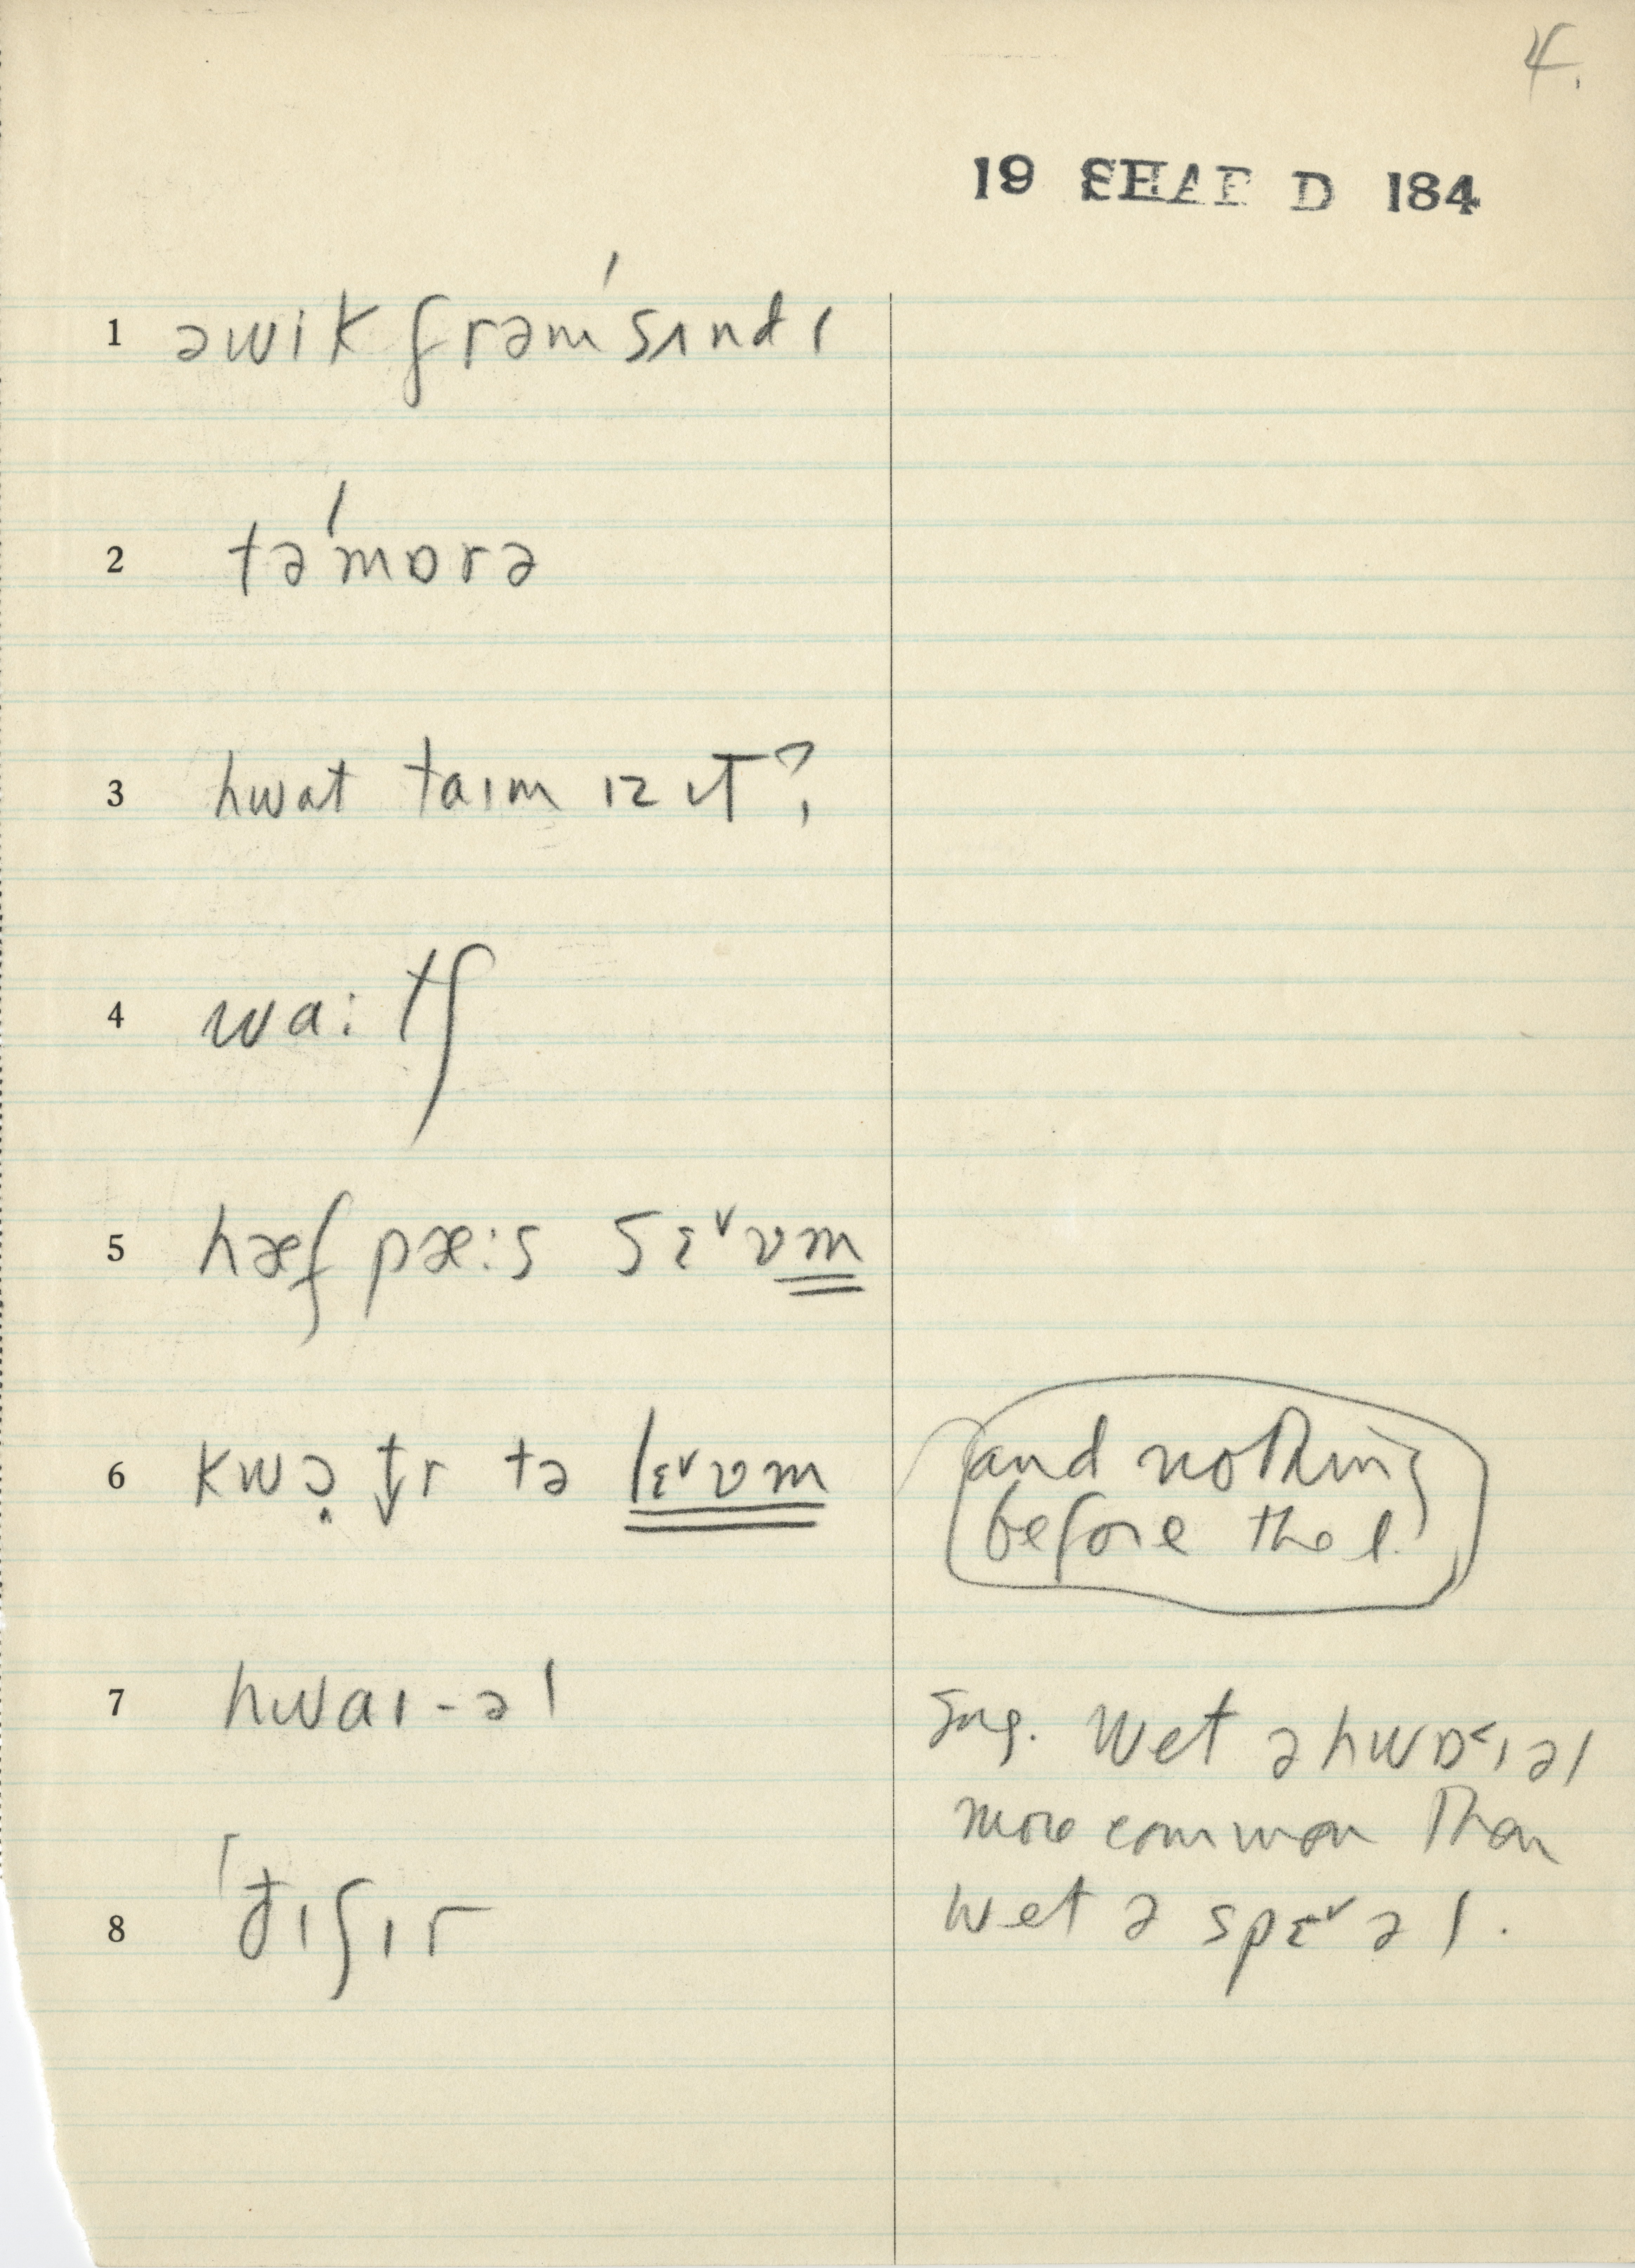 4.
19 SHAF D 184
1 əwik frəm ˈsʌndɪ
2 təˈmɒrə
3 hwat taɪm ɪz ɪt?
4 wa:tʃ
5 hæf pæ:s sɛ˅vm
6 kwə̣ t̬r tə lɛ˅vm
and nothing
before the l.
7 hwaɪ-əl
Sug. wet ə hwɒ˂ɪəl
more common than
wet ə spɛ˅əl.
8 ˈđɪfɪr